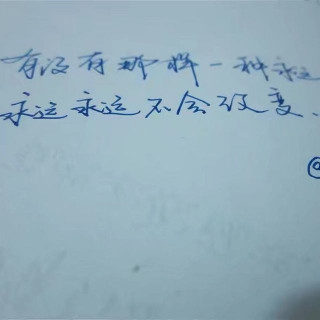 有没有那样一种永远
永远永远不会改变.